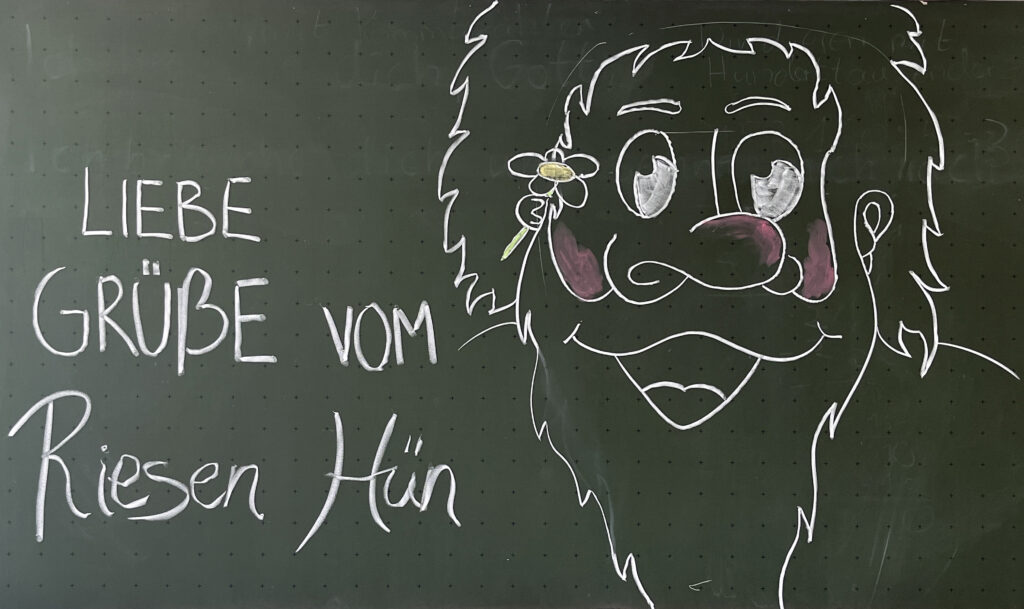 LIEBE
GRÜßE VOM
Riesen Hün